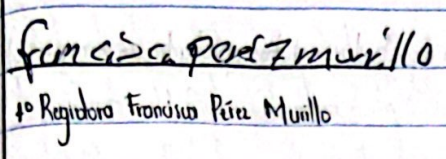 francisca perez murillo
1º Regidora Francisca Pérez Murillo